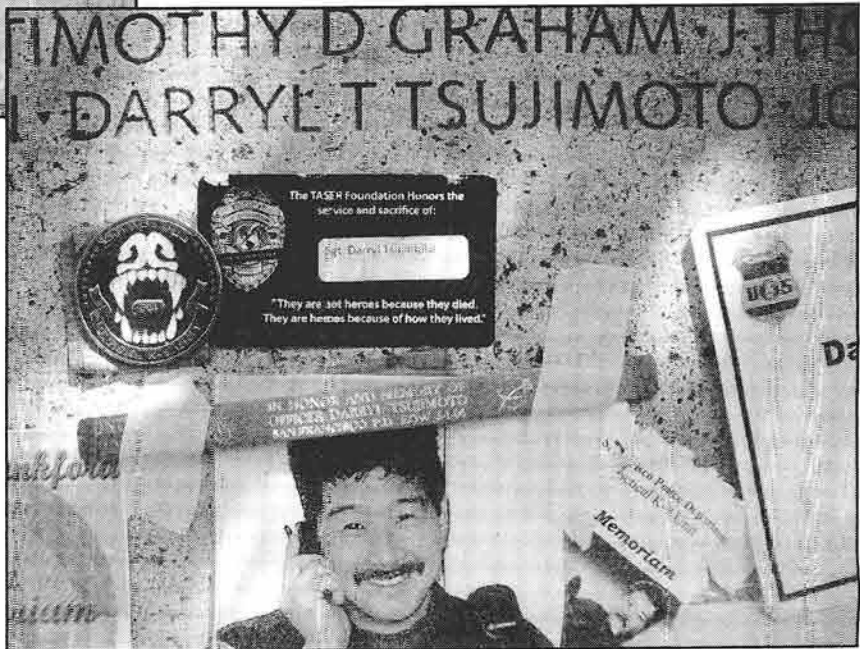 TIMOTHY D GRAHAM · J TH
· DARRYL T TSUJIMOTO · JO
The TASER Foundation Honors the
service and sacrifice of:
Sgt. Darryl Tsujimoto
"They are not heroes because they died.
They are heroes because of how they lived."
IN HONOR AND MEMORY OF
OFFICER DARRYL TSUJIMOTO
SAN FRANCISCO P.D. E.O.W.
Da
nkford
Memoriam